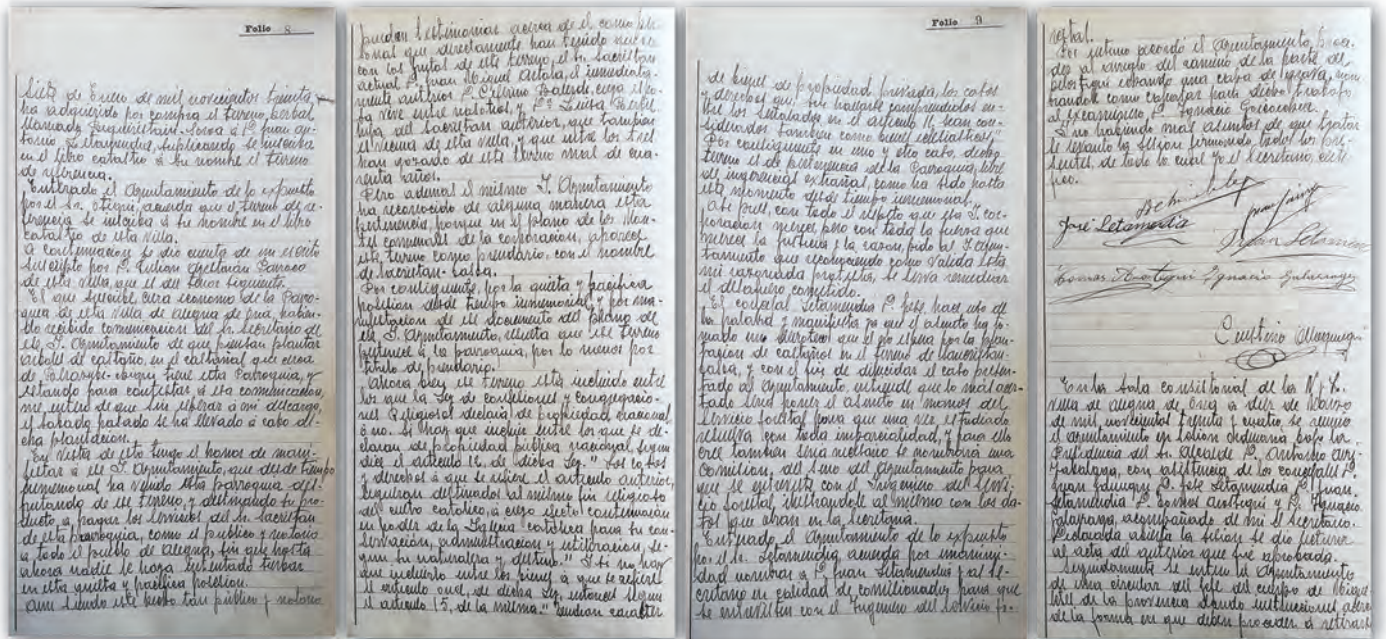 Folio 8
Siete de Enero de mil novecientos treinta,
ha adquirido por compra el terreno herbal
llamado a D. Juan An-
tonio suplicando se inscriba
en el libro catastro a su nombre el terreno
de referencia.
Enterado el Ayuntamiento de lo expuesto
por el Sr. Otegui, acuerda que el terreno de re-
ferencia se inscriba a su nombre en el libro
catastro de esta villa.
A continuación se dio cuenta de un escrito
suscripto por D. Julian Apellaniz Parroco
de esta villa, que es del tenor siguiente.
El que suscribe, cura economo de la Parro-
quia de esta villa de Alegria de Oria, habien-
do recibido comunicacion del Sr. Secretario de
ese I. Ayuntamiento de que piensan plantar
arboles de castaño, en el castañal que cerca
de tiene esta Parroquia, y
estando para contestar a esta comunicacion,
me entero de que sin esperar a mi descargo,
el sabado pasado se ha llevado a cabo di-
cha plantacion.
En vista de esto tengo el honor de mani-
festar a ese I. Ayuntamiento, que desde tiempo
inmemorial ha venido esta parroquia dis-
frutando de ese terreno, y destinando su pro-
ducto, a pagar los servicios del Sr. Sacristan
de esta parroquia, como es publico y notorio
a todo el pueblo de Alegria, sin que hasta
ahora nadie le haya intentado turbar
en esta quieta y pacifica posesion.
Aun siendo este hecho tan público y notorio
puedan testimonios acerca de el, como per-
sonal que directamente han tenido
con los frutos de ese terreno, el Sr. Sacristan
actual D. Juan Miguel Artola, el inmediata-
mente anterior D. cuya espo-
sa vive entre nosotros, y Dª Luisa
hija del Sacristan anterior, que tambien
es vecina de esta villa, y que entre los tres
han gozado de este terreno mas de cua-
renta años.
Pero ademas el mismo I. Ayuntamiento
ha reconocido de alguna manera esta
pertenencia, porque en el plano de los Mon-
tes comunales de la corporacion, aparece
este terreno como prendario, con el nombre
de Sacristan-Saltsa.
Por consiguiente, por la quieta y pacifica
posesion desde tiempo inmemorial, y por ma-
nifestacion de ese documento del plano de
ese I. Ayuntamiento, resulta que ese terreno
pertenece a la parroquia, por lo menos por
titulo de prendario.
Ahora bien ese terreno esta incluido entre
los que la Ley de confesiones y congregacio-
nes Religiosas declara de propiedad nacional
ó no. Si hay que incluir entre los que se de-
claran de propiedad pública nacional, segun
dice el articulo 12, de dicha Ley. "Las cosas
y derechos a que se refiere el articulo anterior,
seguiran destinados al mismo fin religioso
del culto catolico, a cuyo efecto continuarán
en poder de la Iglesia catolica para su con-
servacion, administracion y utilizacion, se-
gun su naturaleza y destino." Y si no hay
que incluirlo entre los bienes, a que se refiere
el articulo once, de dicha Ley, entonces segun
el articulo 15, de la misma, "tendran caracter
Folio 9
de bienes de propiedad privada, las cosas
y derechos que, sin hallarse comprendidos en-
tre los señalados en el articulo 11, sean con-
siderados tambien como bienes eclesiasticos."
Por consiguiente en uno y otro caso, dicho
terreno es de pertenencia de la Parroquia, libre
de ingerencias extrañas, como ha sido hasta
este momento desde tiempo inmemorial.
Asi pues, con todo el respeto que esa I. cor-
poracion merece pero con toda la fuerza que
merece la justicia y la razon, pido al I. Ayun-
tamiento que reconociendo como valida esta
mi razonada protesta, se sirva remediar
el desafuero cometido.
El concejal Letamendia D. José, hace uso de
la palabra y manifiesta ya que el asunto ha to-
mado mas que el que el por la plan-
tacion de castaños en el terreno de
Saltsa, y con el fin de dilucidar el caso presen-
tado al Ayuntamiento, entiende que lo mas acer-
tado seria poner el asunto en manos del
servicio forestal para que una vez estudiado
resuelva con toda imparcialidad, y para ello
cree tambien seria necesario se nombraría una
Comision, del seno del Ayuntamiento para
que se entreviste con el Ingeniero del servi-
cio forestal, ilustrandole al mismo con los da-
tos que obran en la Secretaria.
Enterado el Ayuntamiento de lo expuesto
por el Sr. Letamendia, acuerda por unanimi-
dad nombrar a D. Juan Letamendia y al Se-
cretario en calidad de comisionados para que
se entrevisten con el Ingeniero del servicio fo-
restal.
Por ultimo acordó el Ayuntamiento, proce-
der al arreglo del camino de la parte de
echando una capa de grava, nom-
brandole como capataz para dicho trabajo
al excaminero D. Ignacio Goicoechea.
Y no habiendo mas asuntos de que tratar
se levanto la sesion firmando todos los pre-
sentes, de todo lo cual yo el Secretario, certi-
fico.
José Letamendia
Juan Letamen
Tomas Ignacio
Custodio
En la Sala consistorial de la N. y L.
villa de Alegria de Oria a diez de Marzo
de mil novecientos treinta y cuatro, se reunió
el Ayuntamiento en sesion ordinaria bajo la
Presidencia del Sr. Alcalde D. Ambrosio
con asistencia de los concejales D.
Juan D. José Letamendia D. Juan
Letamendia D. Tomas y D. Ignacio
acompañado de mi el Secretario.
Declarada abierta la sesion se dió lectura
al acta del anterior que fué aprobada.
Seguidamente se entera el Ayuntamiento
de una circular del Jefe del cuerpo de Mique-
letes de la provincia dando instrucciones acerca
de la forma en que deben proceder a retirar